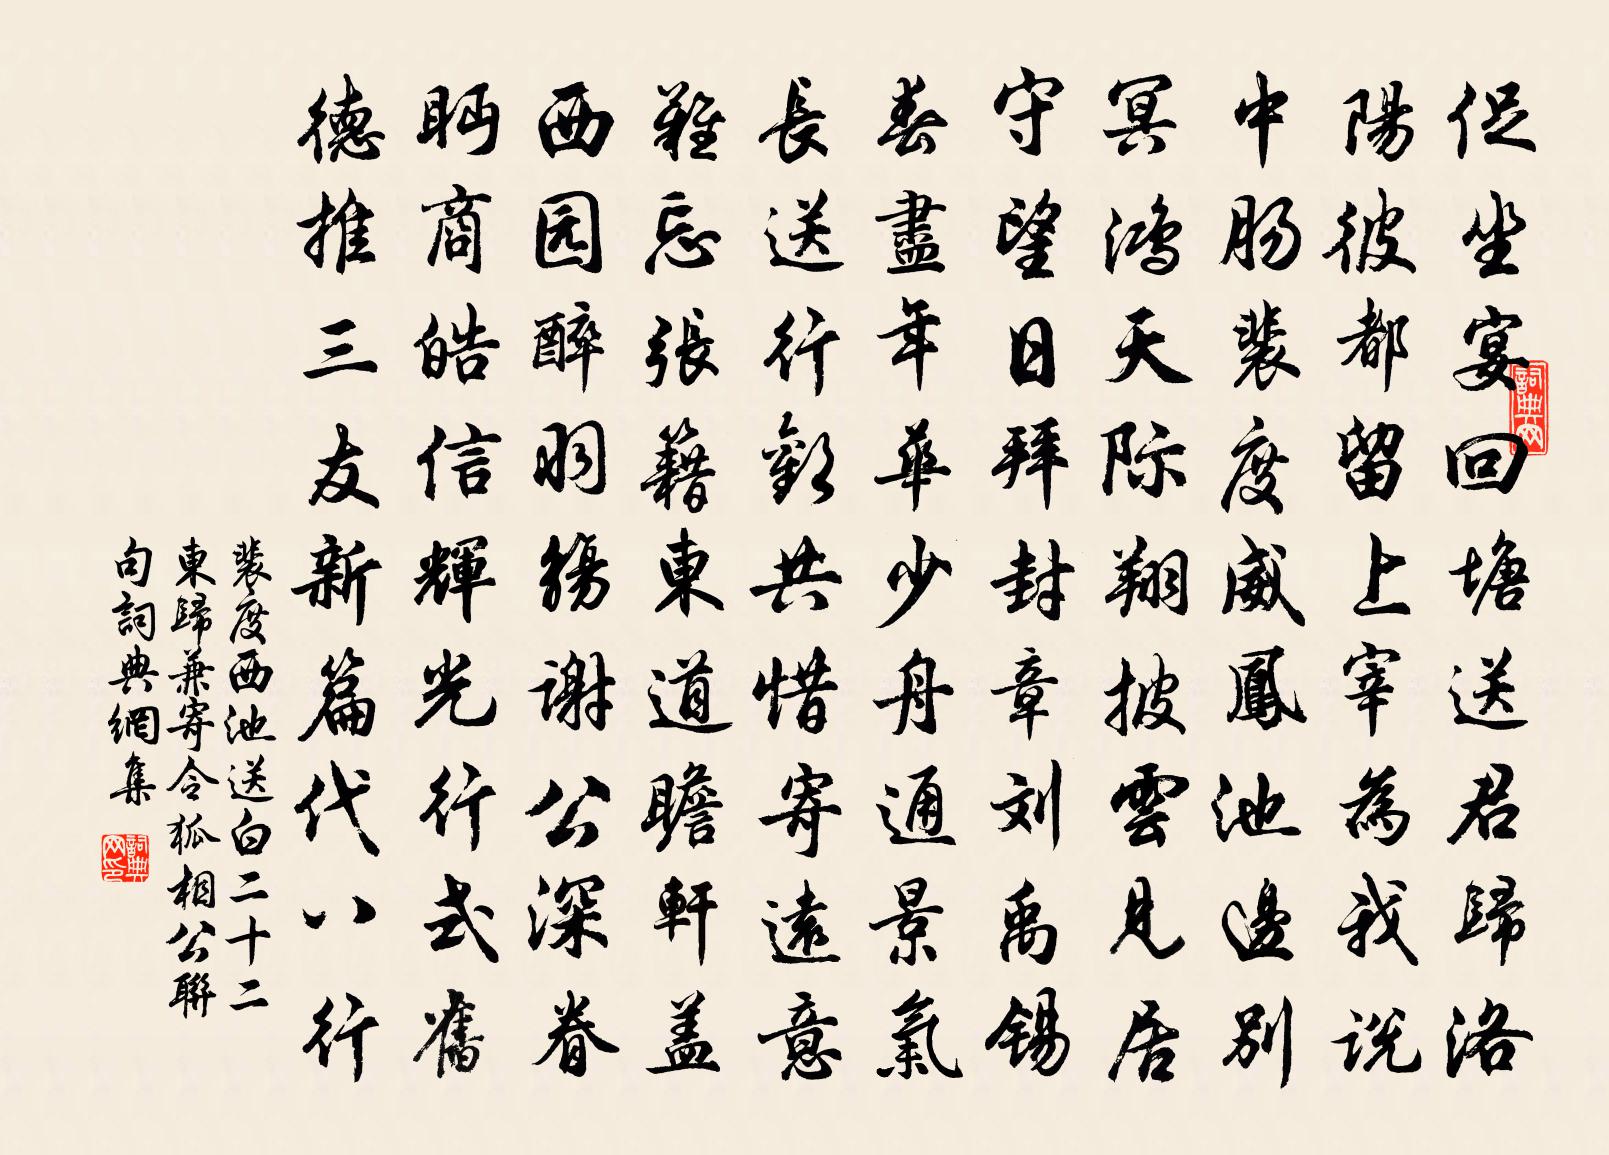 促坐宴回塘送君歸洛
陽彼都留上宰為我説
中肠裴度威鳳池邊别
冥鸿天际翔披雲見居
守望日拜封章刘禹锡
春盡年華少舟通景氣
長送行歡共惜寄遠意
難忘張籍東道瞻軒盖
西园醉羽觴谢公深眷
眄商皓信輝光行式舊
德推三友新篇代八行
裴度西池送白二十二
東歸兼寄令狐相公聯
句詞典網集
詞典网
詞典网印